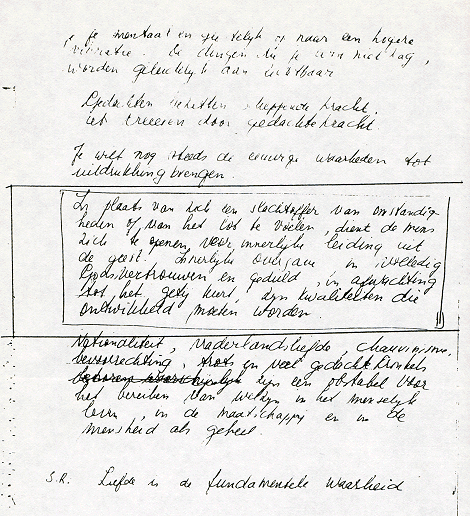 je mentaal en geestelijk op naar een hogere
vibratie. De dingen die je van
worden geleidelijk aan zichtbaar
Gedachten bezitten scheppende kracht
creëren door gedachtekracht.
Je wilt nog steeds de eeuwige waarheden tot
uitdrukking brengen.
In plaats van zich een slachtoffer van omstandig-
heden of van het lot te voelen, dient de mens
zich te openen, voor innerlijke leiding uit
de geest. Innerlijke overgave, in volledig
Godsvertrouwen en geduld, in afwachting
tot het getij keert, zijn kwaliteiten die
ontwikkeld moeten worden.
Nationaliteit, vaderlandsliefde, chauvinisme,
bevoorrechting, trots en veel gedachtekronkels
zijn een obstakel voor
het bereiken van welzijn in het menselijk
leven, in de maatschappij en in de
mensheid als geheel.
S.R. Liefde is de fundamentele waarheid